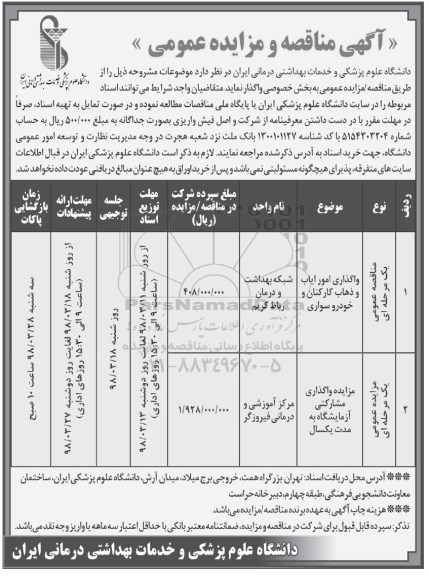 « آگهی مناقصه و مزایده عمومی »
دانشگاه علوم پزشکی و خدمات بهداشتی درمانی ایران
دانشگاه علوم پزشکی و خدمات بهداشتی درمانی ایران در نظر دارد موضوعات مشروحه ذیل را از
طریق مناقصه /مزایده عمومی به بخش خصوصی واگذار نماید. متقاضیان واجد شرایط می‌توانند اسناد
مربوطه را در سایت دانشگاه علوم پزشکی ایران یا پایگاه ملی مناقصات مطالعه نموده و در صورت تمایل به تهیه اسناد، صرفاً
در مهلت مقرر با در دست داشتن معرفینامه از شرکت و اصل فیش واریزی بصورت جداگانه به مبلغ ۵۰۰/۰۰۰ ریال به حساب
شماره ۵۱۵۴۳۰۳۲۰۴ با کد شناسه ۱۳۰۰۱۰۱۱۲۷ بانک ملت نزد شعبه هجرت در وجه مدیریت نظارت و توسعه امور عمومی
دانشگاه، جهت خرید اسناد به آدرس ذکر شده مراجعه نمایند. لازم به ذکر است دانشگاه علوم پزشکی ایران در قبال اطلاعات
سایت‌های متفرقه، پذیرای هیچگونه مسئولیتی نمی باشد و پس از خرید اوراق به هیچ عنوان مبالغ دریافتی عودت داده نخواهد شد.
ردیف
نوع
موضوع
نام واحد
مبلغ سپرده شرکت در مناقصه / مزایده (ریال)
مهلت توزیع اسناد
جلسه توجیهی
مهلت ارائه پیشنهادات
زمان بازگشایی پاکات
۱
مناقصه عمومی یک مرحله ای
واگذاری امور ایاب و ذهاب کارکنان و خودرو سواری
شبکه بهداشت و درمان رباط کریم
۴۰۸/۰۰۰/۰۰۰
از روز شنبه ۹۸/۰۳/۱۱ لغایت روز دوشنبه ۹۸/۰۳/۱۳ (ساعت ۹ الی ۱۵:۳۰ روزهای اداری)
روز شنبه ۹۸/۰۳/۱۸
از روز شنبه ۹۸/۰۳/۱۸ لغایت روز دوشنبه ۹۸/۰۳/۲۷ (ساعت ۹ الی ۱۵:۳۰ روزهای اداری)
سه شنبه ۹۸/۰۳/۲۸ ساعت ۱۰ صبح
۲
مزایده عمومی یک مرحله ای
مزایده واگذاری مشارکتی آزمایشگاه به مدت یکسال
مرکز آموزشی و درمانی فیروزگر
۱/۹۲۸/۰۰۰/۰۰۰
ParsNamadData
پایگاه اطلاع رسانی مناقصه و مزایده
۰۲۱-۸۸۳۴۹۶۷۰-۵
*** آدرس محل دریافت اسناد: تهران، بزرگراه همت، خروجی برج میلاد، میدان آرش، دانشگاه علوم پزشکی ایران، ساختمان
معاونت دانشجویی فرهنگی، طبقه چهارم، دبیرخانه حراست
*** هزینه چاپ آگهی به عهده برنده مناقصه/ مزایده می‌باشد.
تذکر: سپرده قابل قبول برای شرکت در مناقصه و مزایده، ضمانتنامه معتبر بانکی با حداقل اعتبار سه ماهه یا واریز وجه نقد می‌باشد.
دانشگاه علوم پزشکی و خدمات بهداشتی درمانی ایران